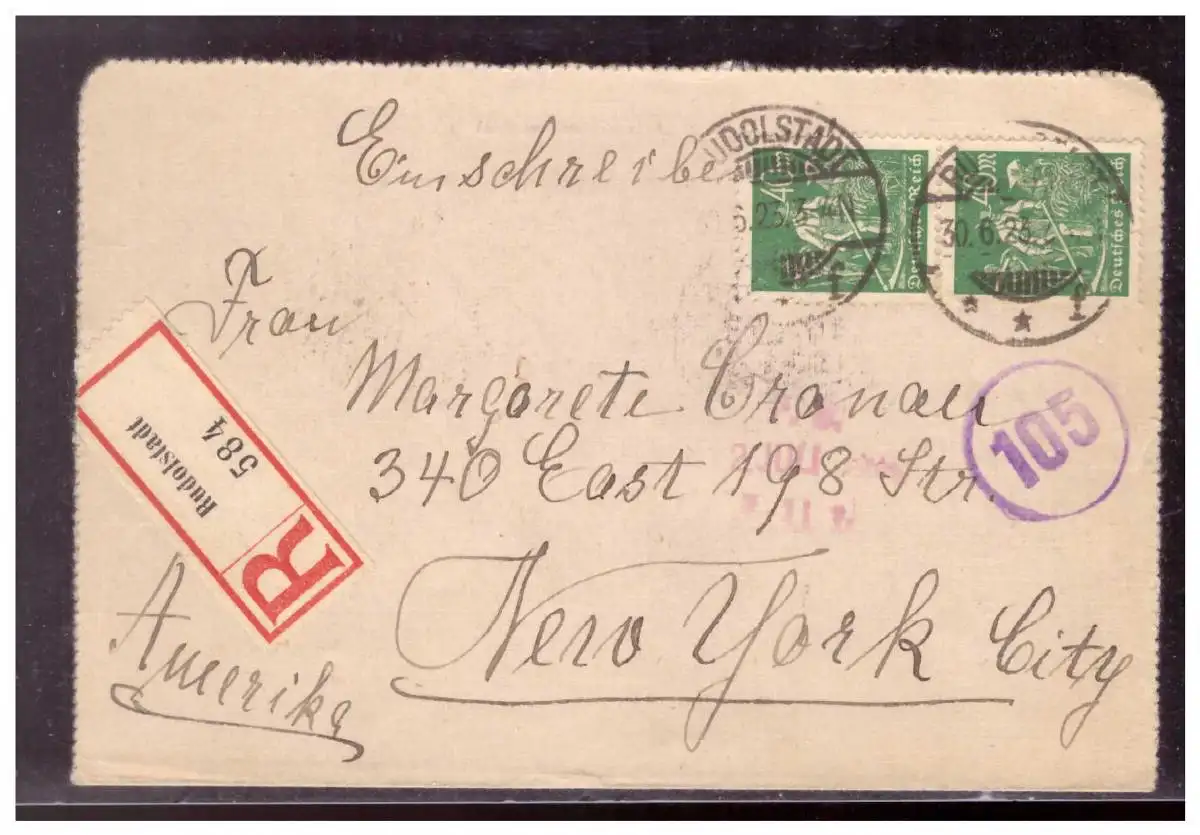 Einschreiben
RUDOLSTADT
6.23.3-4N
40 M
Deutsches Reich
30.6.23
40 M
Deutsches Reich
Frau
Margarete Cronau
340 East 198 Str.
New York City
Amerika
R
Rudolstadt
584
105